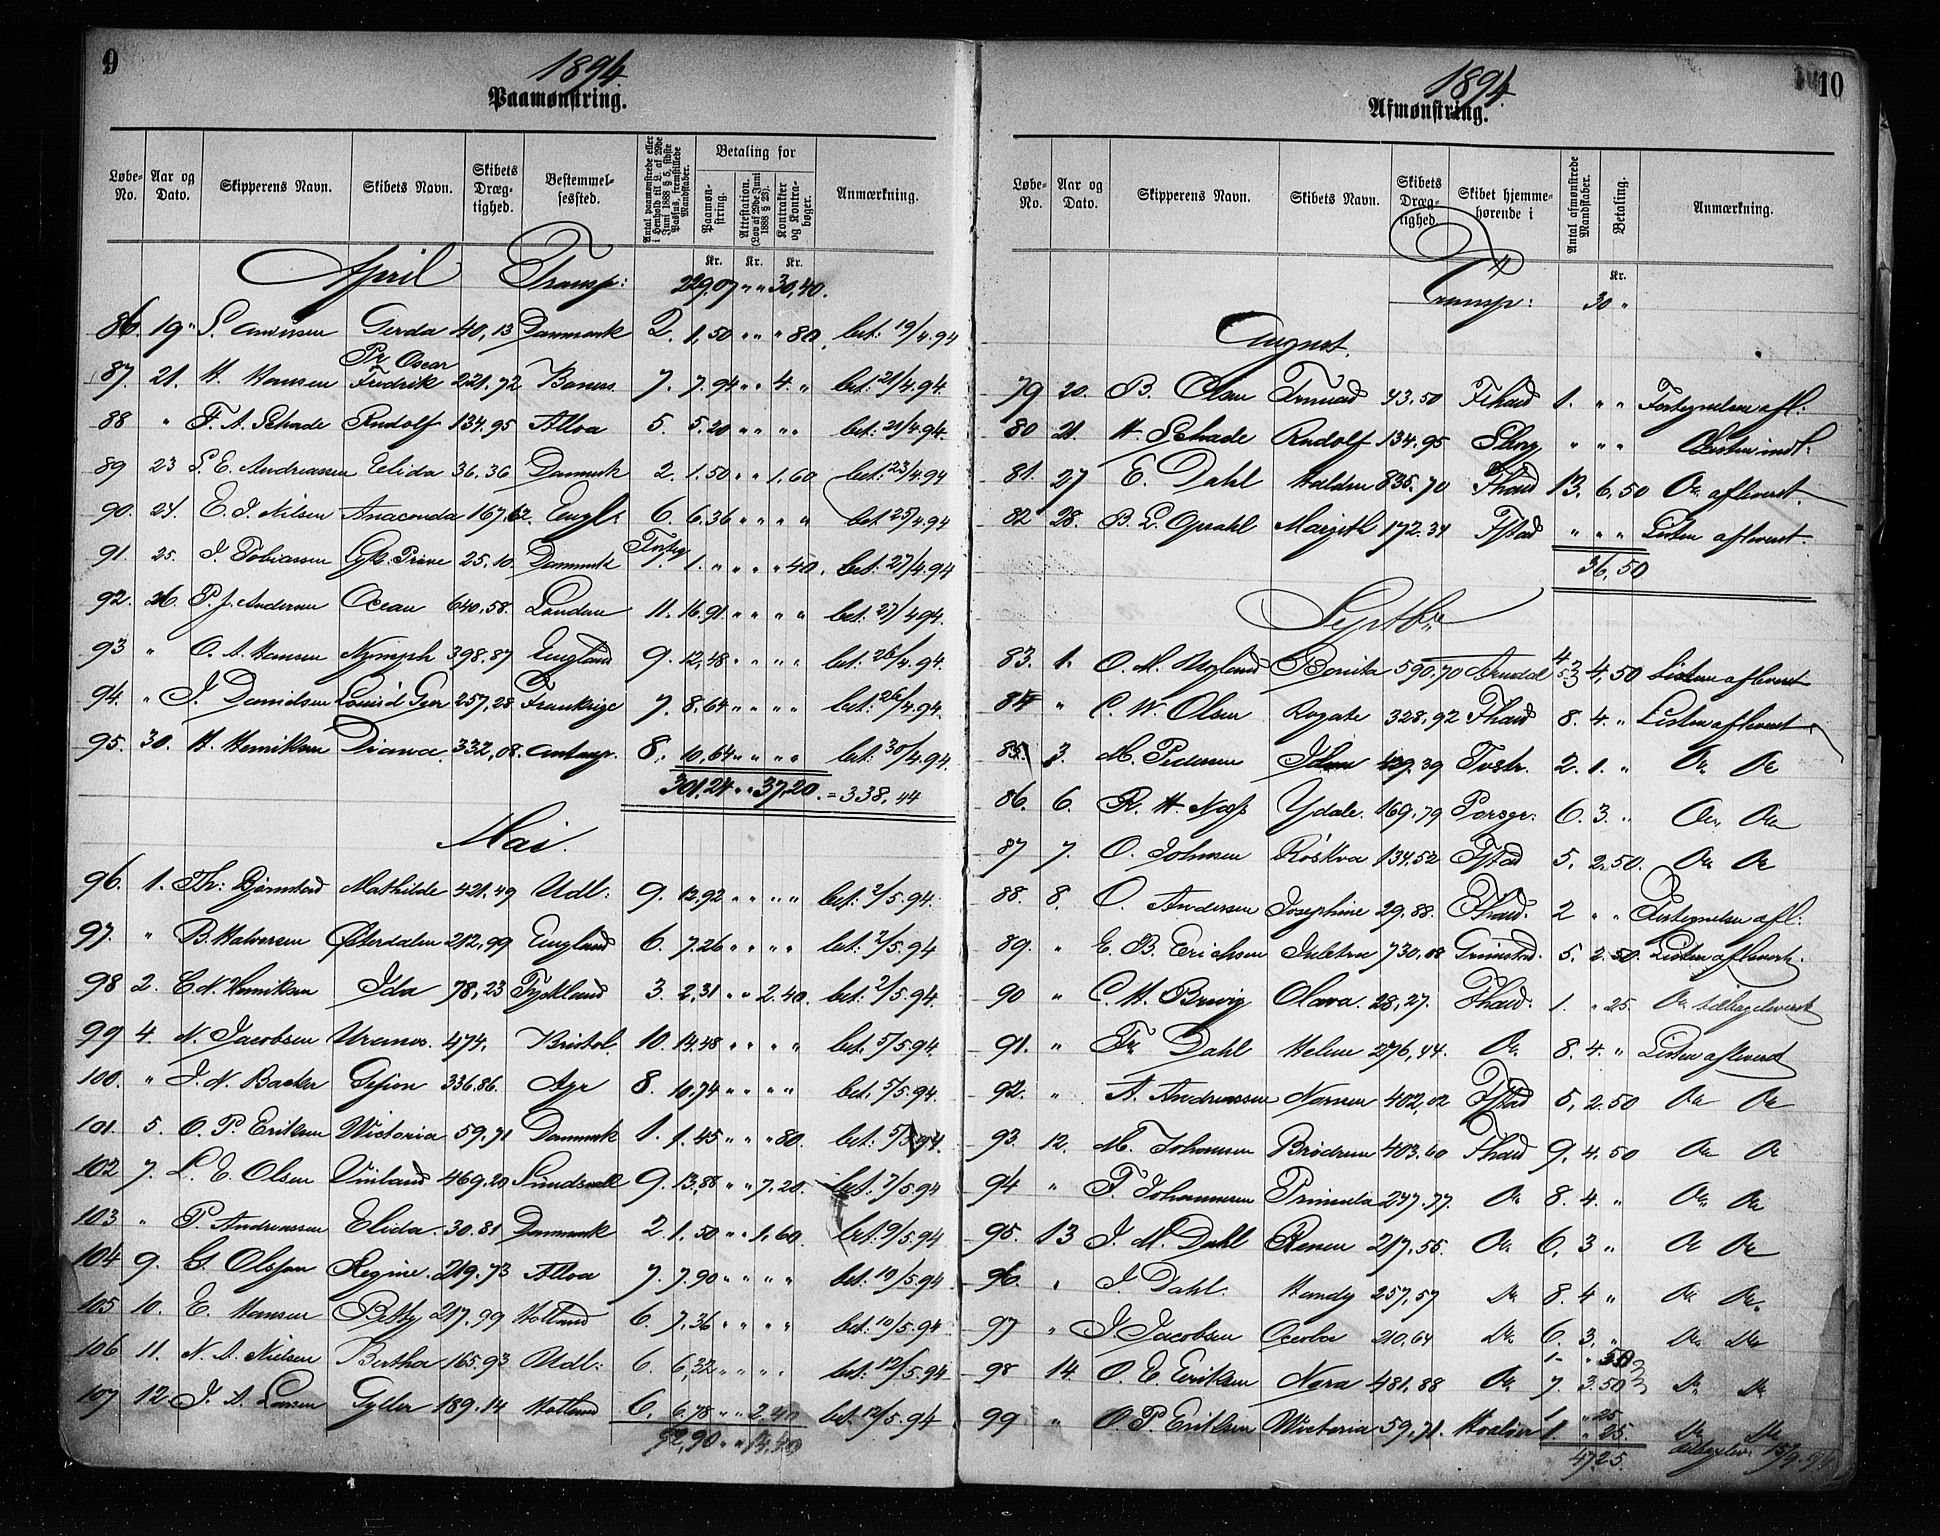 9
1894
Paamønstring.
Løbe-No. Aar og Dato. Skipperens Navn. Skibets Navn. Skibets Dræg-tighed. Bestemmel-sessted. Antal paamønstrede eller i Henhold til L. af 29de Juni 1888 § 5, sidste Passus, fremstillede Mandskaber. Betaling for Paamøn-string. Attestation. (Lov af 29de Juni 1888 § 23). Kontrakter og Kontra-bøger. Anmærkning.
Kr. Kr. Kr.
April Transp: 229,07 " " 30,40.
86. 19 " S. Gerda 40,13 Danmark 2. 1,50 " " " 80. bet: 19/4.94
87. 21. H. Hansen Pr. Oscar Fredrik 221,72 7. 7.94 " " 4. " bet: 21/4.94.
88 " F. A. Schade Rudolf 134.95 Alloa 5. 5.20 " " " " bet: 21/4.94.
89 23 S. E. Andreassen Elida 36,36 Danmark 2. 1.50 " " 1,60 bet: 23/4.94
90. 24. E. J. Nilsen Anaconda 167,62. Engl: 6. 6.36 " " " " bet 25/4.94
91. 25. J. Tobiassen 25.10. Danmark 1. " " " " 40. bet: 27/4.94
92. 26. P. J. Andersen Ocean 640,58. London 11. 16.91 " " " " bet: 27/4.94.
93 " O. A. Hansen Nymph 398.87 England 9. 12,48 " " " " bet: 26/4.94.
94. " J. Danielsen Louis d Geer 257,28 Frankrige 7. 8,64 " " " " bet: 26/4.94.
95. 30. H. Henriksen Diana 332,08. Antwp. 8. 10,64 " " " " bet: 30/4.94.
301,24 " " 37,20. = 338,44
Mai.
96. 1. Th: Bjørnstad Mathilde 421.49 Udl: 9. 12.92 " " " " bet: 2/5.94.
97. " B. Halvorsen Østerdalen 212,99 England 6. 7.26 " " " " bet: 2/5.94
98 2. C. N. Henriksen Ida 78,23 Tyskland 3. 2,31 " " 2.40. bet: 2/5.94.
99 4. N. Jacobsen Uranus. 474. Bristol. 10. 14.48 " " " " bet: 5/5.94.
100. " J. N. Backer Gefion 336.86. Ayr 8. 10.74 " " " " bet: 5/5.94.
101. 5. O. P. Eriksen Victoria 59.71 Danmark 1. 1.45 " " " 80. bet: 5/5.94.
102 7. L. E. Olsen Vinland 469.20 Sundsvall 9. 13,88 " " 7.20. bet: 7/5.94
103 " P. Andreassen Elida. 30.81 Danmark 2. 1.50 " " 1,60. bet: 9/5.94
104 9. G. Olsson Regine. 219.73 Alloa 7. 7.90 " " " " bet: 10/5.94
105 10. E. Hansen Betty 217.99 Holland 6. 7.36 " " " " bet: 10/5.94
106 11. N. A. Nielsen Bertha 165.93 Udl: 6. 6,32 " " " " bet: 12/5.94
107 12. J. A. Larsen Gyller 189.14 Holland 6. 6.78 " " 2.40 bet: 12/5.94
92,90 " " 14,40
10
1894.
Afmønstring.
Løbe-No. Aar og Dato. Skipperens Navn. Skibets Navn. Skibets Dræg-tighed. Skibet hjemme-hørende i Antal afmønstrede Mandskaber. Betaling. Anmærkning.
Kr.
Transp: 30 "
August.
79 20. B. Olsen 43.50 Fthavd 1. " " Fortegnelsen afl:
80 21. H. Schade Rudolf 134.95 " " " Listen indl:
81. 27 E. Dahl Halden 835,70 Thavd 13. 6,50 Do afleveret.
82 28. B. L. Opsahl Margith 172.34 Fstad " " " Listen afleveret.
36,50
Septbr
83. 1. O. M. Ugland Bonita 590,70 Arendal 4 53 4,50 Listen afleveret
84 " C. W. Olsen Rogate 328,92 Thavd 8. 4. " Listen afleveret
85. 3. M. Pedersen 129.39 Tvstr. 2. 1. " Do Do
86. 6. R. H. Næss Ydale. 169,79 Porsgr: 6. 3. " Do Do
87 7. O. Johnsen Röskva 134.52 Fstad 5. 2,50. Do Do
88. 8. O. Andersen Josephine 29.88. Thavd. 2 " " Fortegnelsen afl:
89. " E. B. Erichsen 730,08 Grimstad. 5. 2.50. Listen afleveret.
90 " C. H. Brevig Olava. 28,27. Thavd. 1. " 25. Do tilbageleveret
91. " Fr. Dahl Helene 276,44. Do 8. 4. " Listen afleveret
92. " A. Andreassen Nornen 402,02 Fstad 5. 2.50 Do Do
93. 12. M. Johansen Brødrene 403.60 Thavd 9. 4.50 Do Do
94 " P. Johannesen Primula 247.77. Do 8. 4. " Do Do
95. 13 J. M. Dahl 217.55. Do 6. 3 " Do Do
96. " J. Dahl. Handy 257,57 Do 8. 4 " Do Do.
97 " J. Jacobsen 210,64 Do 6. 3. " Do Do
1. " 50
98 14. O. E. Eriksen Nora 481.88 Do 7. 3.50 Do Do
1. " 25
99 " O. P. Eriksen Victoria 59,71 Hvaløer 1. " 25. Do Do
tilbaglev: 15/9.94
47.25.